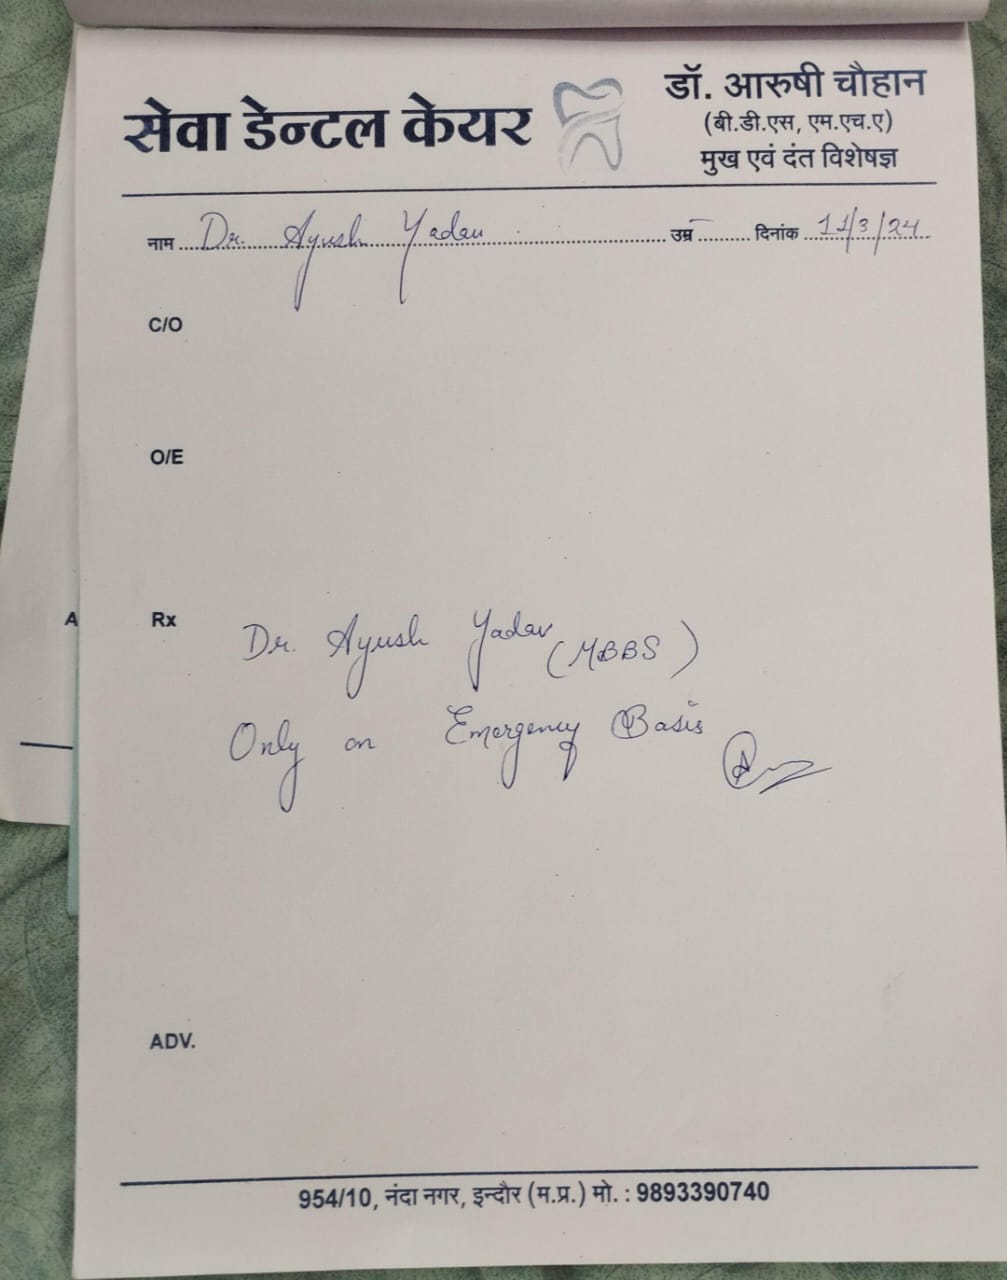 सेवा डेन्टल केयर
डॉ. आरुषी चौहान
(बी.डी.एस, एम.एच.ए)
मुख एवं दंत विशेषज्ञ
नाम Dr. Ayush Yadav उम्र दिनांक 11/3/24
C/O
O/E
A
Rx
Dr. Ayush Yadav (MBBS)
Only on Emergency Basis
ADV.
954/10, नंदा नगर, इन्दौर (म.प्र.) मो. : 9893390740